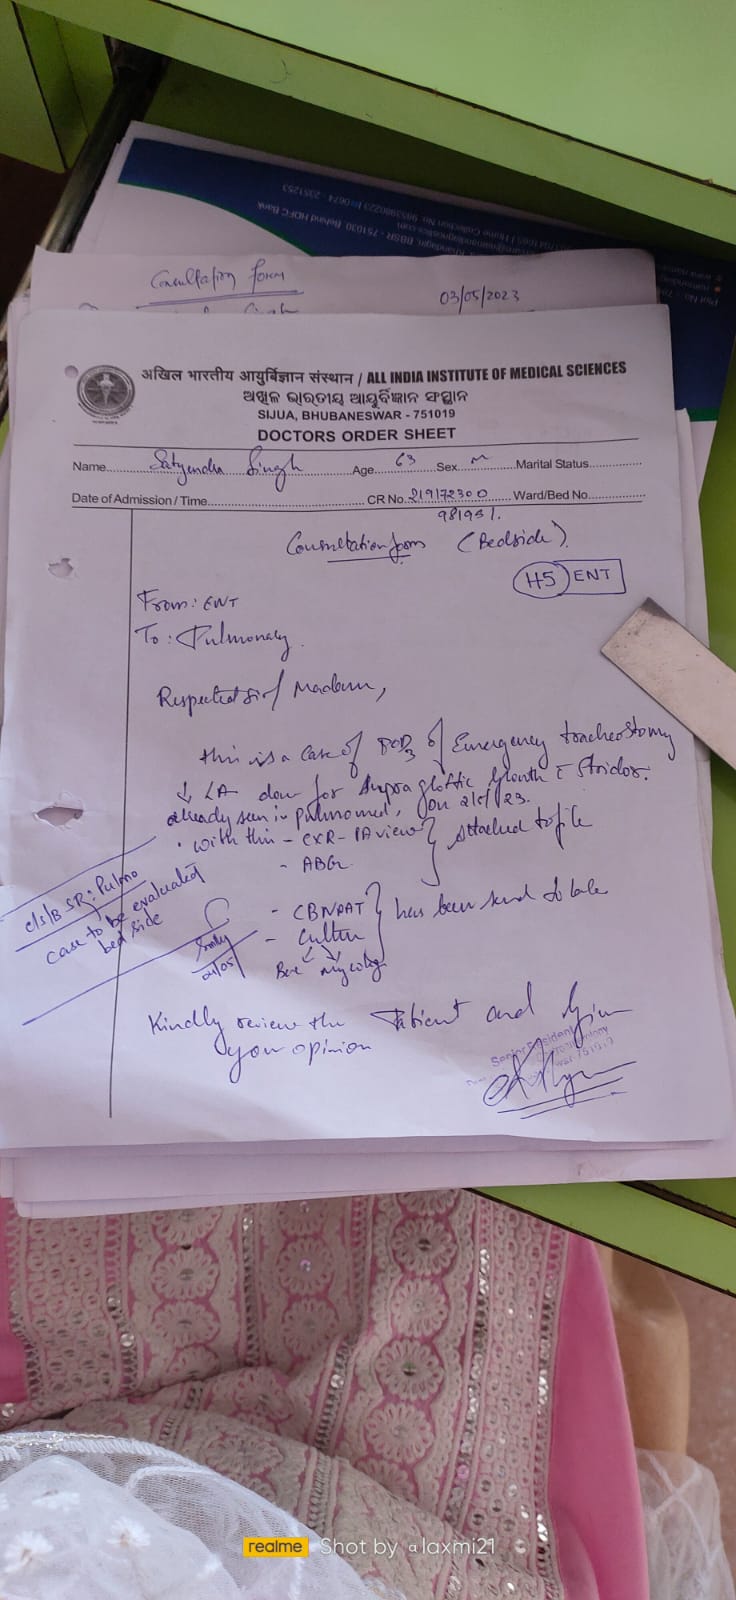 Consultation form
03/05/2023
अखिल भारतीय आयुर्विज्ञान संस्थान / ALL INDIA INSTITUTE OF MEDICAL SCIENCES
ଅଖିଳ ଭାରତୀୟ ଆୟୁର୍ବିଜ୍ଞାନ ସଂସ୍ଥାନ
SIJUA, BHUBANESWAR - 751019
DOCTORS ORDER SHEET
Name Satyendra Singh Age 63 Sex M Marital Status
Date of Admission / Time CR No. 219172300 Ward/Bed No
98195%
Consultation form (Bedside)
H5 ENT
From: ENT
To: Pulmonary
Respected sir/ Madam,
this is a case of POD3 of Emergency tracheostomy
↓ LA done for Supraglottic Growth c Stridor.
already seen in pulmomed, on 2/5/23.
• with this - CXR - PA view } attached to file
- ABG
c/s/B SR: Pulmo
case to be evaluated
bed side
04/05
- CBNAAT } has been send to
- Culture
Kindly review the Patient and Give
your opinion
Senior Resident
751019
realme Shot by @laxmi21